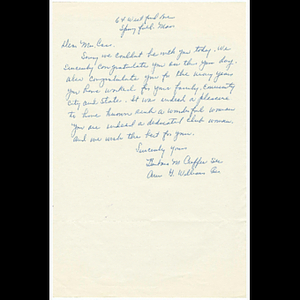 64 Westford Ave
Springfield. Mass
Dear Mrs. Cass.
Sorry we couldn't be with you today. We
sincerely congratulate you on this your day.
Also congratulate you for the many years
you have worked for your family, Community
City and State. It was indeed a pleasure
to have known such a wonderful woman
You are indeed a dedicated club woman.
And we wish the best for you.
Sincerely yours
M
H. Williams